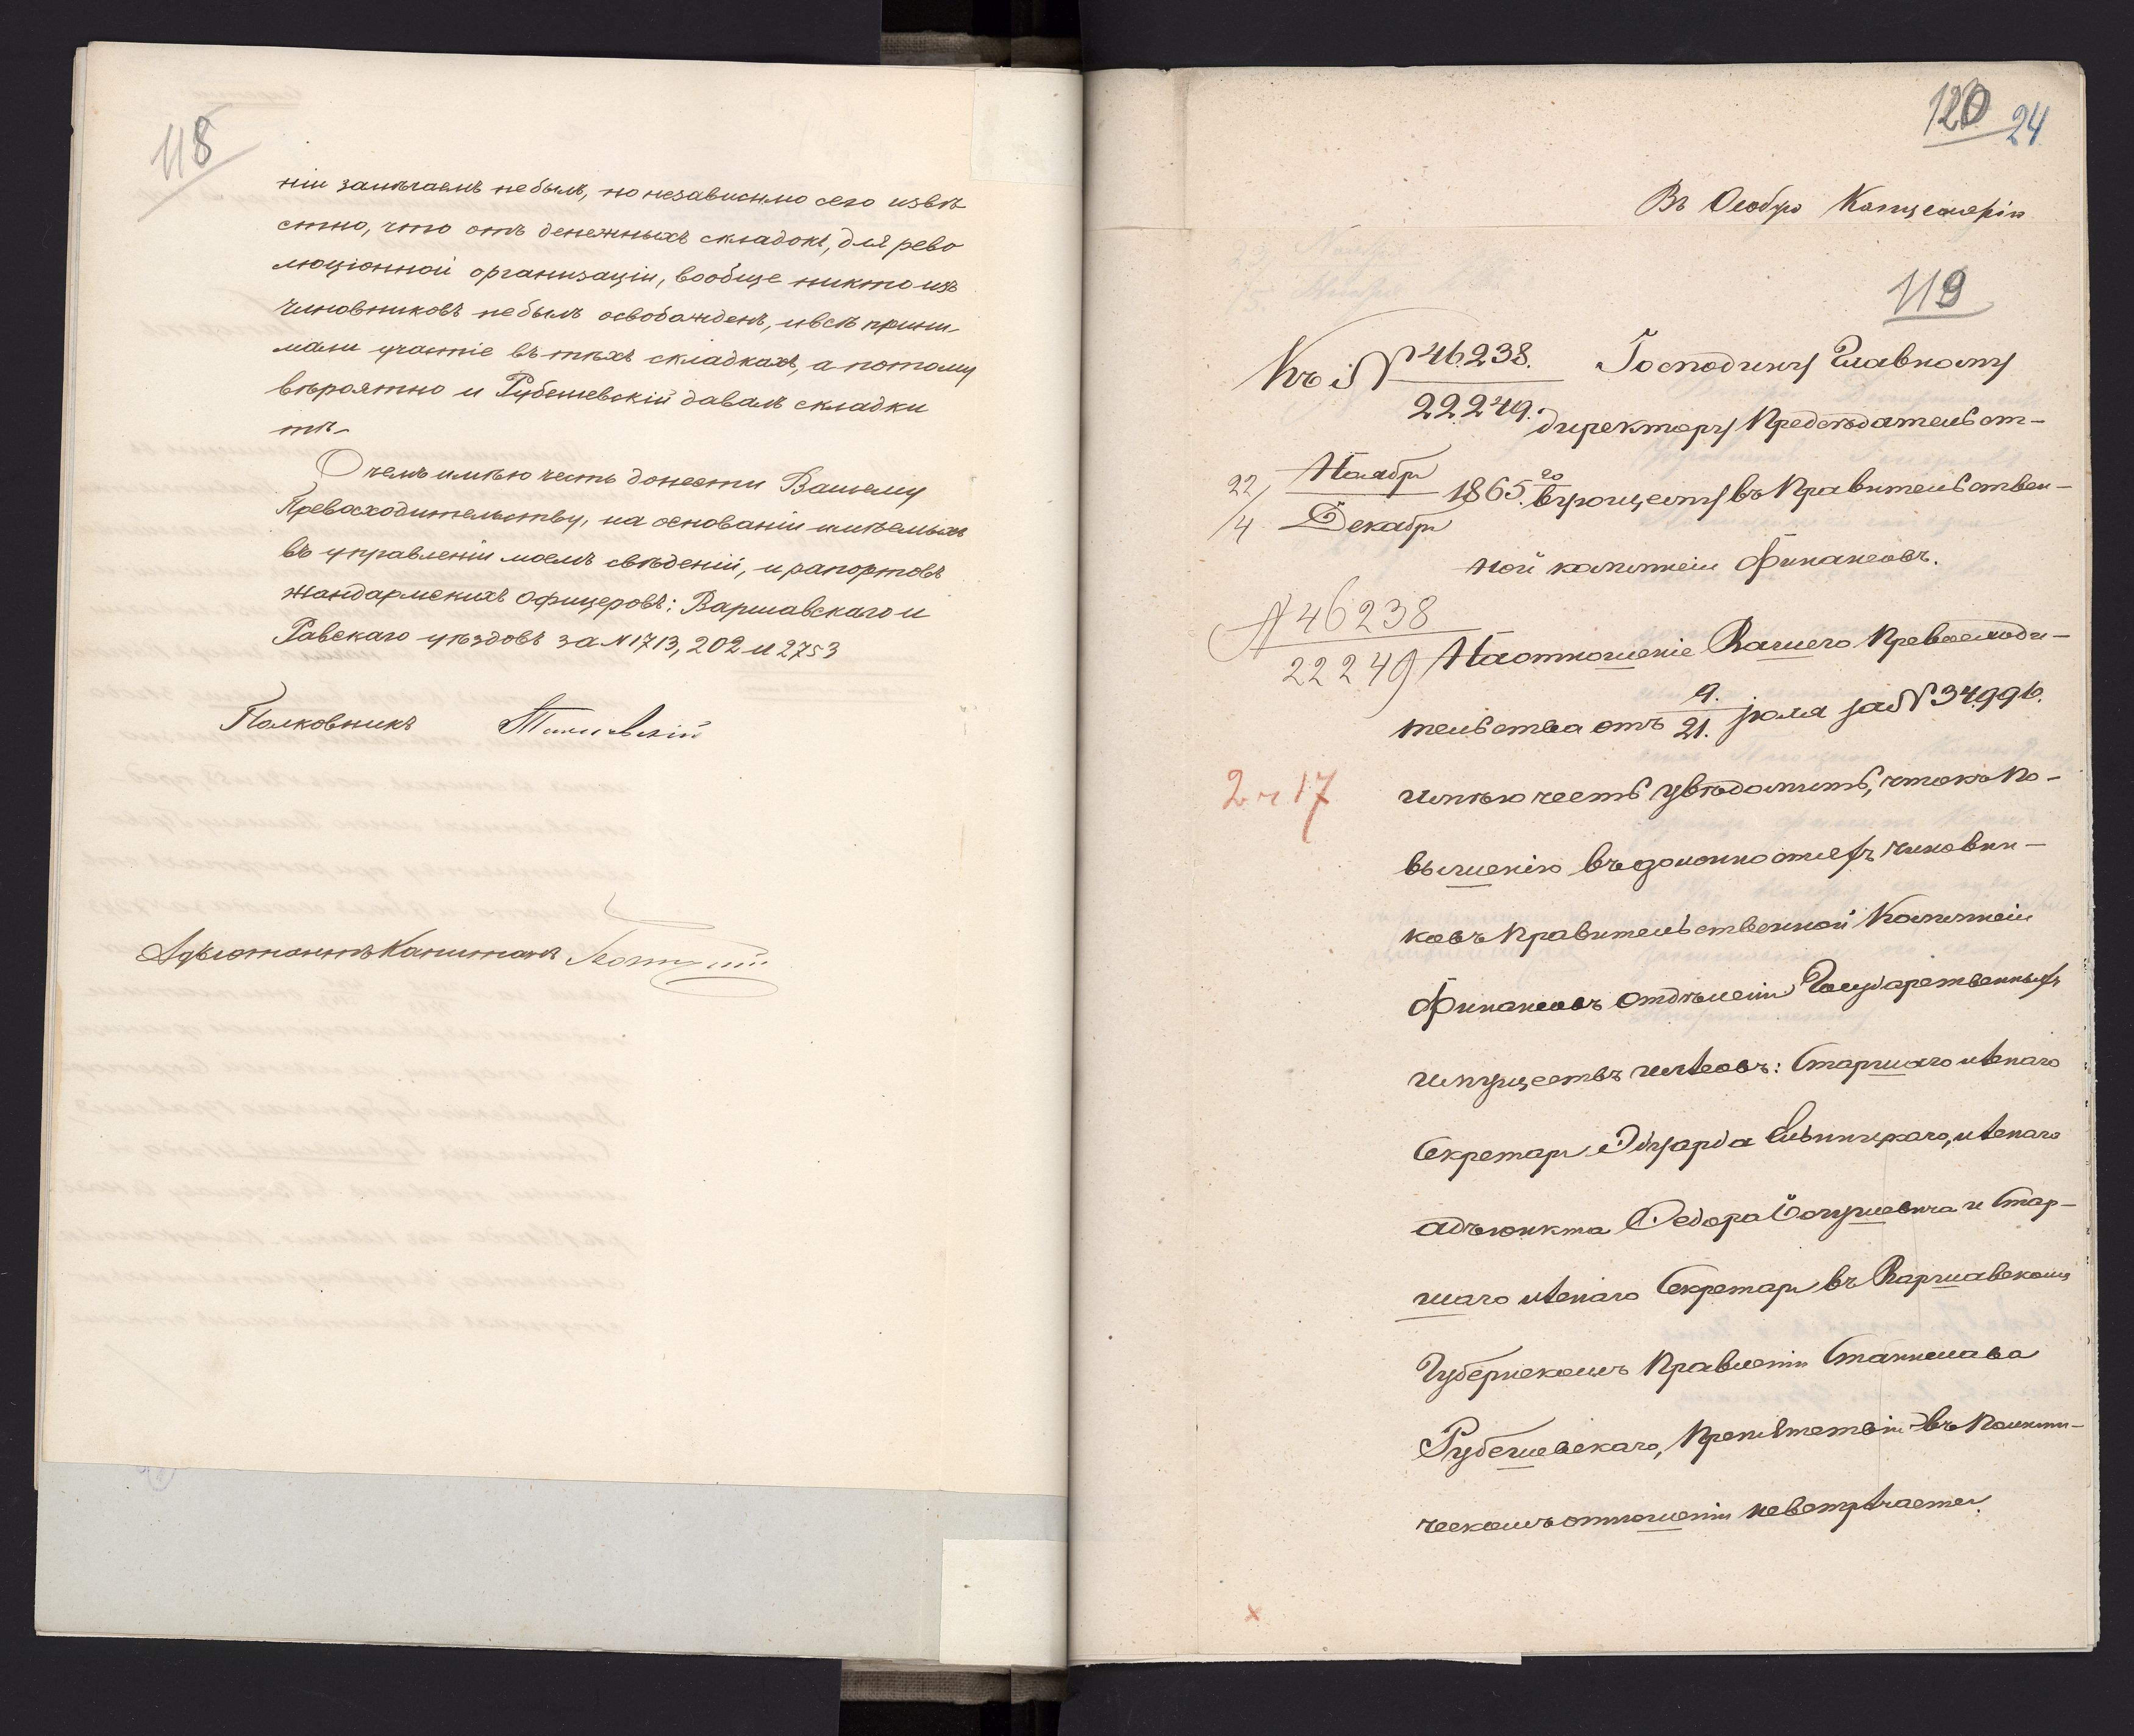 118
ніи замѣчаемъ не былъ, но независимо сего извѣ
стно, что отъ денежныхъ складокъ, для рево
люціонной организаціи, вообще никто изъ
чиновниковъ не былъ освобожденъ, и всѣ прини-
мали участіе въ тѣхъ складкахъ, а потому
вѣроятно и Рубешевскій давалъ складки
тѣ-
О чемъ имѣю честь донести Вашему
Превосходительству, на основаніи имѣемыхъ
въ управленіи моемъ свѣденій, и рапортовъ
жандармскихъ офицеровъ: Варшавскаго и
Равскаго уѣздовъ за N 1713, 202 и 2753
Полковникъ
Адъютантъ Капитанъ
120 24
Въ Особую Канцелярію
119
Къ № 46238.
22249.
Господину Главному
Директору Предсѣдательст-
22/4 Ноября/Декабря 1865 го
вующему въ Правительствен-
ной коммисіи Финансовъ.
N 46238
22249
На отношеніе Вашего Превосходи-
тельства отъ 9./21. Іюля за № 34996.
2 ч 17
имѣю честь увѣдомить, что къ по-
вышенію въ должностяхъ чиновни-
ковъ Правительственной Коммисіи
Финансовъ Отдѣленія Государственныхъ
имуществъ и лѣсовъ: Старшаго лѣснаго
Секретаря Эдуарда лѣснаго
адъюнкта Федора и Стар-
шаго лѣснаго Секретаря въ Варшавскомъ
Губернскомъ Правленіи Станислава
Рубешевскаго, препятствій въ полити-
ческомъ отношеніи не встрѣчается.